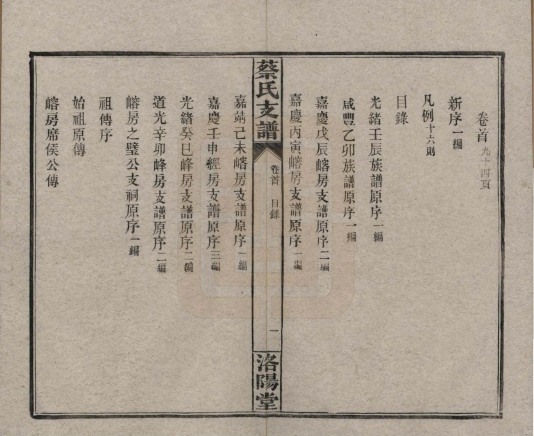 卷首九十四頁
新序一編
凡例十六則
目錄
光緒壬辰族譜原序一編
咸豐乙卯族譜原序一編
嘉慶戊辰嵱房支譜原序二編
嘉慶丙寅嵱房支譜原序一編
蔡氏支譜
卷首 目錄
一
洛陽堂
嘉靖己未嵱房支譜原序一編
嘉慶壬申經房支譜原序三編
光緒癸巳峰房支譜原序二編
道光辛卯峰房支譜原序二編
嵱房之璧公支祠原序一編
祖傳序
始祖原傳
嵱房席侯公傳